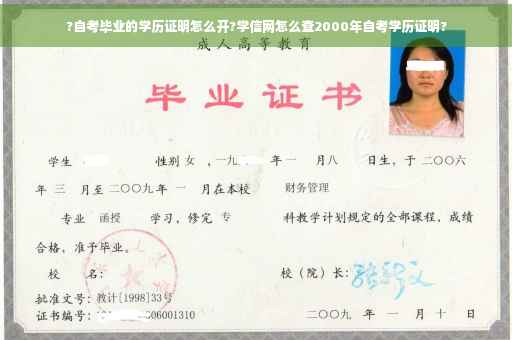 ?自考毕业的学历证明怎么开?学信网怎么查2000年自考学历证明?
成人高等教育
毕业证书
学生 性别 女 ,一九 年一 月八 日生,于二〇〇六
年 三 月至二〇〇九年 一 月在本校 财务管理
专业 函授 学习,修完 专 科教学计划规定的全部课程,成绩
合格,准予毕业。
校 名: 校(院)长:
批准文号:教计[1998]33号
证书编号: 06001310 二〇〇九 年 一 月 十 日